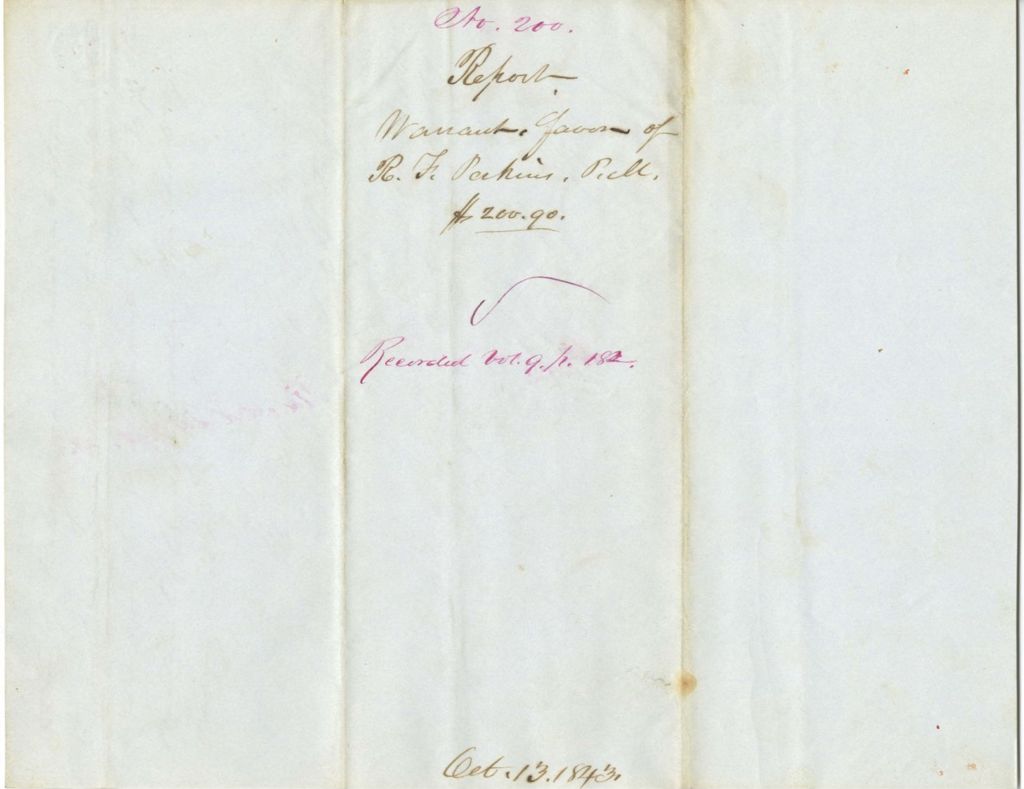 No. 200.
Report
Warrant, favor of
R. F. Perkins,
$200.90.
Recorded Vol. 9. p. 182.
Oct. 13. 1843.